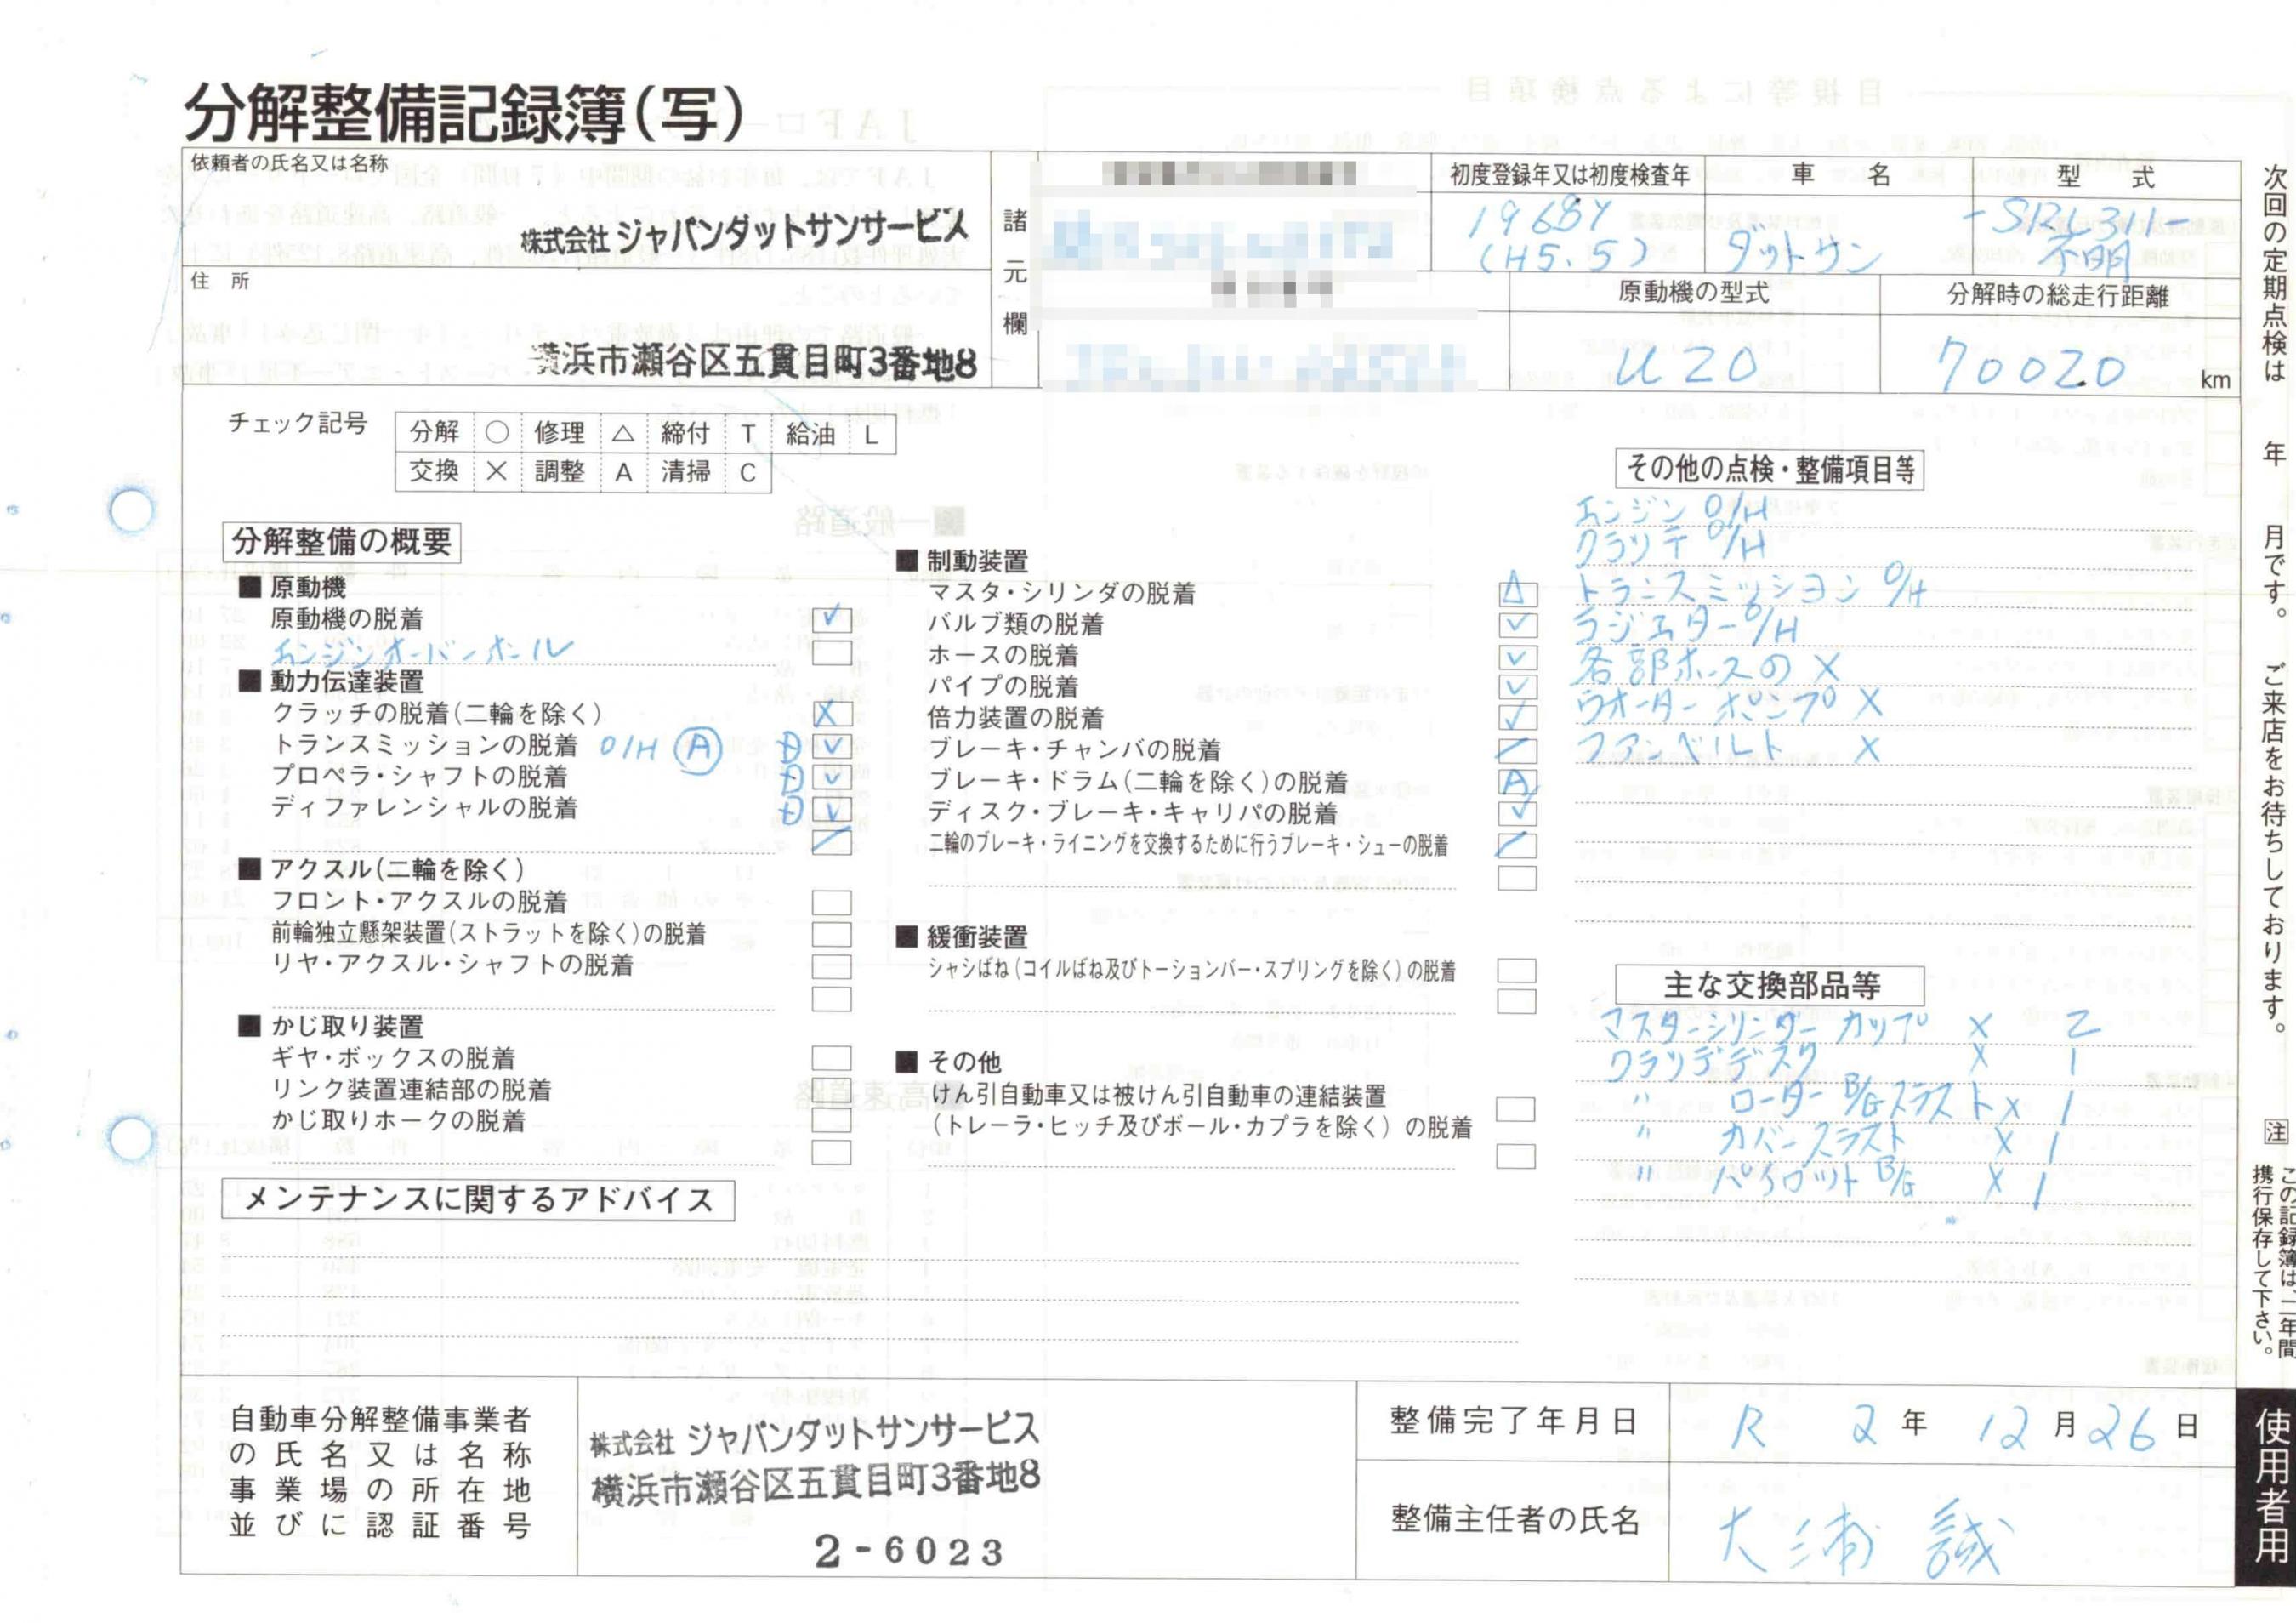 分解整備記録簿(写)
依頼者の氏名又は名称
株式会社 ジャパンダットサンサービス
住 所
横浜市瀬谷区五貫目町3番地8
諸元欄
初度登録年又は初度検査年
1968Y
(H5.5)
車 名
ダットサン
型 式
-SRL311-
不明
原動機の型式
U20
分解時の総走行距離
70020 km
チェック記号
分解 ○ 修理 △ 締付 T 給油 L
交換 × 調整 A 清掃 C
分解整備の概要
■ 原動機
原動機の脱着 ✓
エンジンオーバーホール
■ 動力伝達装置
クラッチの脱着(二輪を除く) X
トランスミッションの脱着 O/H Ⓐ D ✓
プロペラ・シャフトの脱着 D ✓
ディファレンシャルの脱着 D ✓
■ アクスル(二輪を除く)
フロント・アクスルの脱着
前輪独立懸架装置(ストラットを除く)の脱着
リヤ・アクスル・シャフトの脱着
■ かじ取り装置
ギヤ・ボックスの脱着
リンク装置連結部の脱着
かじ取りホークの脱着
■ 制動装置
マスタ・シリンダの脱着 △
バルブ類の脱着 ✓
ホースの脱着 ✓
パイプの脱着 ✓
倍力装置の脱着 ✓
ブレーキ・チャンバの脱着 /
ブレーキ・ドラム(二輪を除く)の脱着 A
ディスク・ブレーキ・キャリパの脱着 ✓
二輪のブレーキ・ライニングを交換するために行うブレーキ・シューの脱着 /
■ 緩衝装置
シャシばね(コイルばね及びトーションバー・スプリングを除く)の脱着
■ その他
けん引自動車又は被けん引自動車の連結装置
(トレーラ・ヒッチ及びボール・カプラを除く)の脱着
その他の点検・整備項目等
エンジン O/H
クラッチ O/H
トランスミッション O/H
ラジエター O/H
各部ホースの X
ウオーターポンプ X
ファンベルト X
主な交換部品等
マスターシリンダー カップ X 2
クラッチデスク X 1
〃 ローター B/Gスラスト X 1
〃 カバースラスト X 1
〃 パイロット B/G X 1
メンテナンスに関するアドバイス
自動車分解整備事業者
の氏名又は名称
事業場の所在地
並びに認証番号
株式会社 ジャパンダットサンサービス
横浜市瀬谷区五貫目町3番地8
2-6023
整備完了年月日
R 2年 12月 26日
整備主任者の氏名
大浦 誠
次回の定期点検は 年 月です。 ご来店をお待ちしております。
注 この記録簿は、二年間
携行保存して下さい。
使用者用